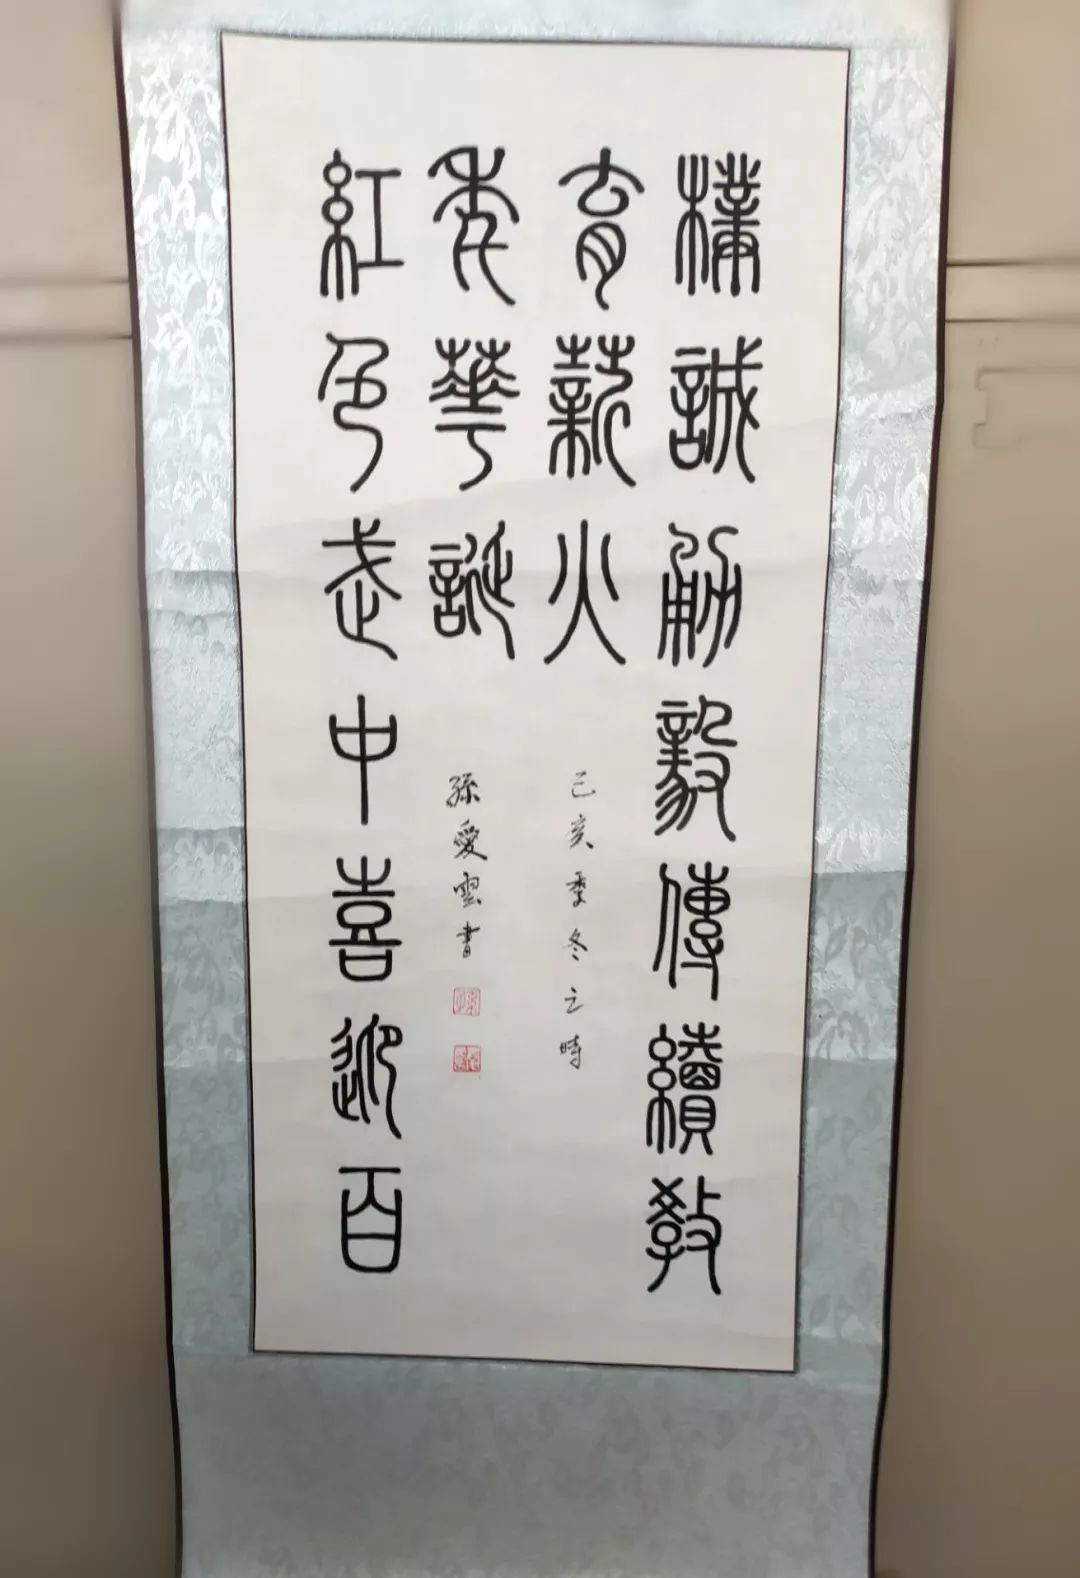 樸誠勇毅傳續教
育薪火
己亥季冬之時
紅色武中喜迎百
年華誕
孫愛雲書